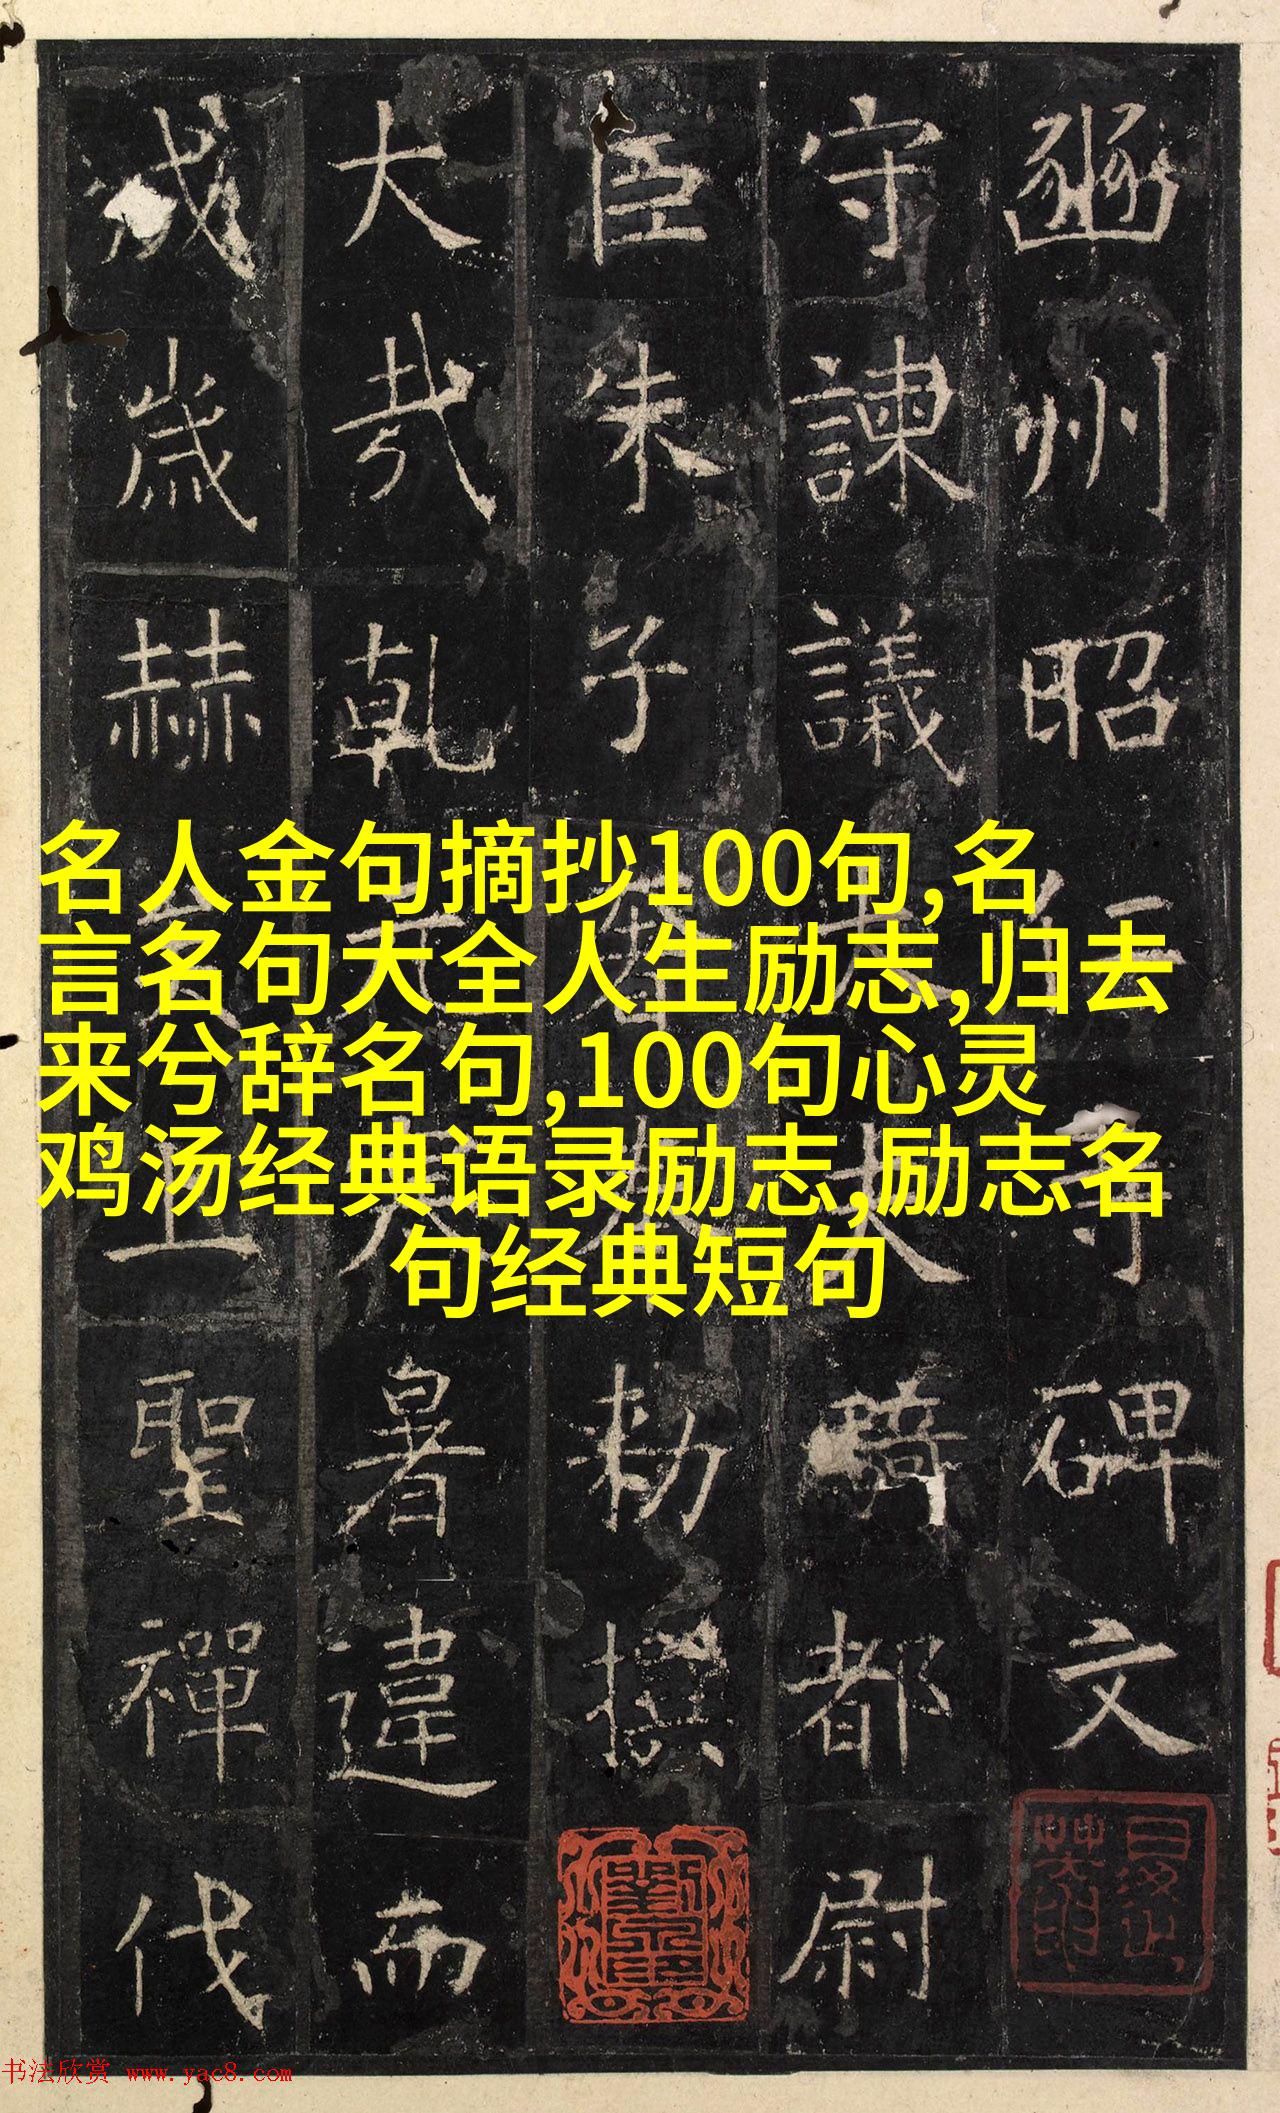 豳州昭仁寺碑文
守諫議大夫騎都尉
臣朱子奢奉勑撰
大哉乾元寒暑違而
成歲赫矣上聖禪代
名人金句摘抄100句,名
言名句大全人生励志,归去
来兮辞名句,100句心灵
鸡汤经典语录励志,励志名
句经典短句
书法欣赏 www.yac8.com